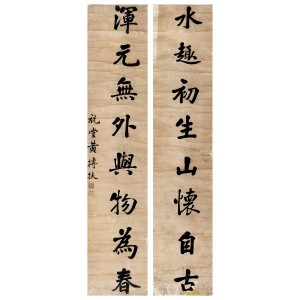 水趣初生山懷自古
渾元無外與物為春
黃摶扶